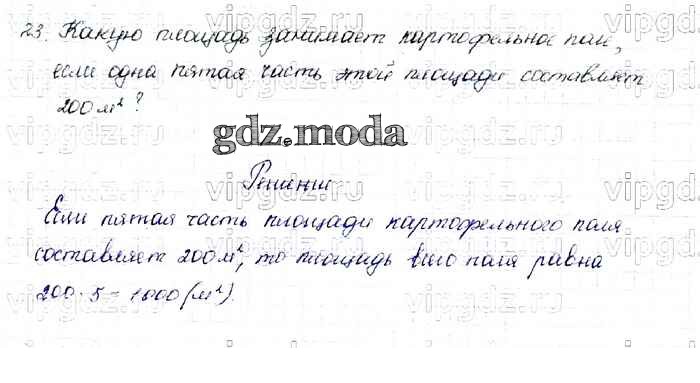 23. Какую площадь занимает картофельное поле,
если одна пятая часть этой площади составляет
200 м²?
gdz.moda
Решение
Если пятая часть площади картофельного поля
составляет 200 м², то площадь всего поля равна
200 · 5 = 1000 (м²).